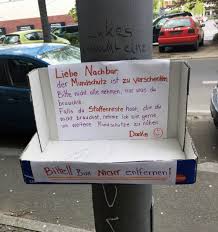 Liebe Nachbar,
der Mundschutz ist zu verschenken
Bitte nicht alle nehmen, nur was du
brauchst.
Falls du Stoffreste hast, die du
nicht brauchst, nehme ich sie gerne
um weitere Mundschütze zu nähen
Danke
Bitte!! Box Nicht entfernen!